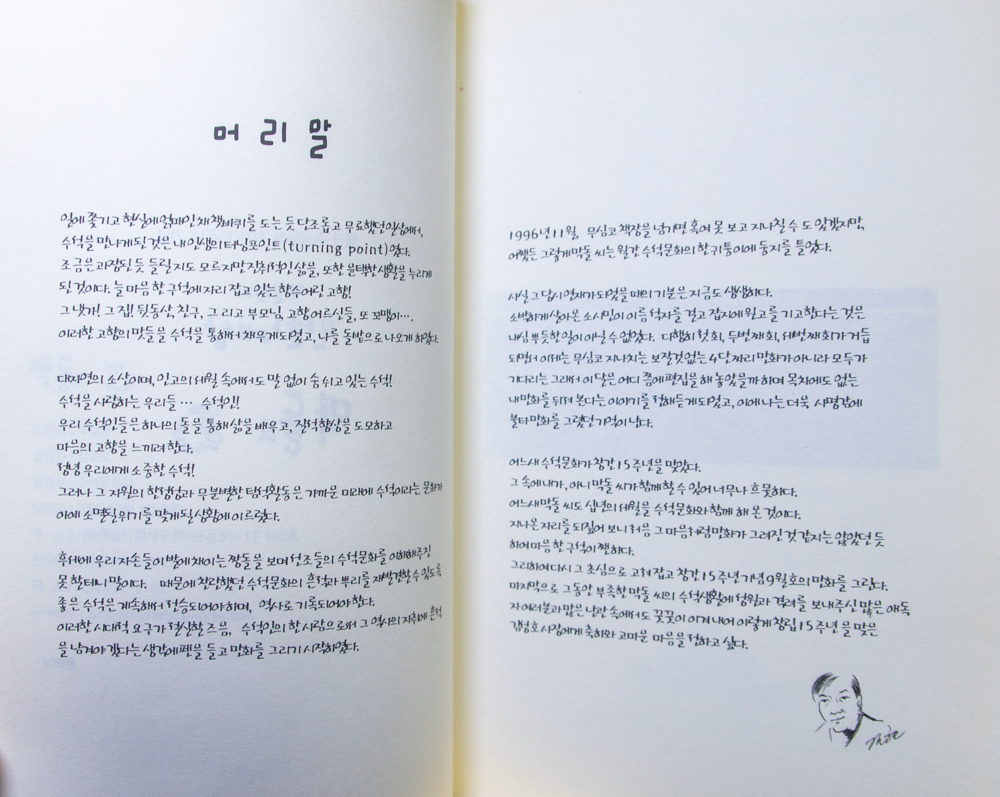 머 리 말
일에 쫓기고 현실에 얽매인 채 쳇바퀴를 도는 듯 단조롭고 무료했던 일상에서,
수석을 만나게 된 것은 내 인생의 터닝포인트(turning point)였다.
조금은 과장된 듯 들릴지도 모르지만 진취적인 삶을, 또한 윤택한 생활을 누리게
된 것이다. 늘 마음 한 구석에 자리 잡고 있는 향수어린 고향!
그 냇가! 그 집! 뒷동산, 친구, 그리고 부모님, 고향 어르신들, 또 꼬맹이…
이러한 고향의 맛들을 수석을 통해서 채우게 되었고, 나를 돌밭으로 나오게 하였다.
대자연의 소산이며, 인고의 세월 속에서도 말 없이 숨쉬고 있는 수석!
수석을 사랑하는 우리들 … 수석인!
우리 수석인들은 하나의 돌을 통해 삶을 배우고, 질적향상을 도모하고
마음의 고향을 느끼려 한다.
정녕 우리에게 소중한 수석!
그러나 그 자원의 한정성과 무분별한 탐석활동은 가까운 미래에 수석이라는 문화가
이에 소멸될 위기를 맞게 될 상황에 이르렀다.
후세에 우리 자손들이 발에 채이는 짱돌을 보며 선조들의 수석문화를 이해해주진
못 할테니 말이다. 때문에 찬란했던 수석문화의 흔적과 뿌리를 재발견할 수 있도록
좋은 수석은 계속해서 전승되어야 하며, 역사로 기록되어야 한다.
이러한 시대적 요구가 절실한 즈음, 수석인의 한 사람으로써 그 역사의 자취에 흔적
을 남겨야 겠다는 생각에 펜을 들고 만화를 그리기 시작하였다.
1996년 11월, 무심코 책장을 넘기면 혹여 못 보고 지나칠 수 도 있겠지만,
어쨌든 그렇게 막돌 씨는 월간 수석문화의 한 귀퉁이에 둥지를 틀었다.
사실 그 당시 연재가 되었을 때의 기분은 지금도 생생하다.
소박하게 살아온 소시민이 이름 석자를 걸고 잡지에 원고를 기고한다는 것은
내심 뿌듯한 일이 아닐 수 없었다. 다행히 첫 회, 두번째 회, 세번째 회가 거듭
되면서 이제는 무심코 지나치는 보잘것 없는 4단짜리 만화가 아니라 모두가
기다리는 그래서 이 달은 어디 쯤에 편집을 해 놓았을까 하며 목차에도 없는
내 만화를 뒤져 본다는 이야기를 전해듣게 되었고, 이에 나는 더욱 사명감에
불타 만화를 그렸던 기억이 난다.
어느새 수석문화가 창간 15주년을 맞았다.
그 속에 내가, 아니 막돌 씨가 함께 할 수 있어 너무나 흐뭇하다.
어느새 막돌 씨도 십년의 세월을 수석문화와 함께 해 온 것이다.
지나온 자리를 되짚어 보니 처음 그 마음처럼 만화가 그려진 것 같지는 않았던 듯
하여 마음 한 구석이 짠하다.
그리하여 다시 그 초심으로 고쳐 잡고 창간 15주년 기념 9월호의 만화를 그린다.
마지막으로 그동안 부족한 막돌 씨의 수석생활에 성원과 격려를 보내주신 많은 애독
자 여러분과 많은 난관 속에서도 꿋꿋이 이겨 내어 이렇게 창립 15주년 을 맞은
김정호 사장에게 축하와 고마운 마음을 전하고 싶다.